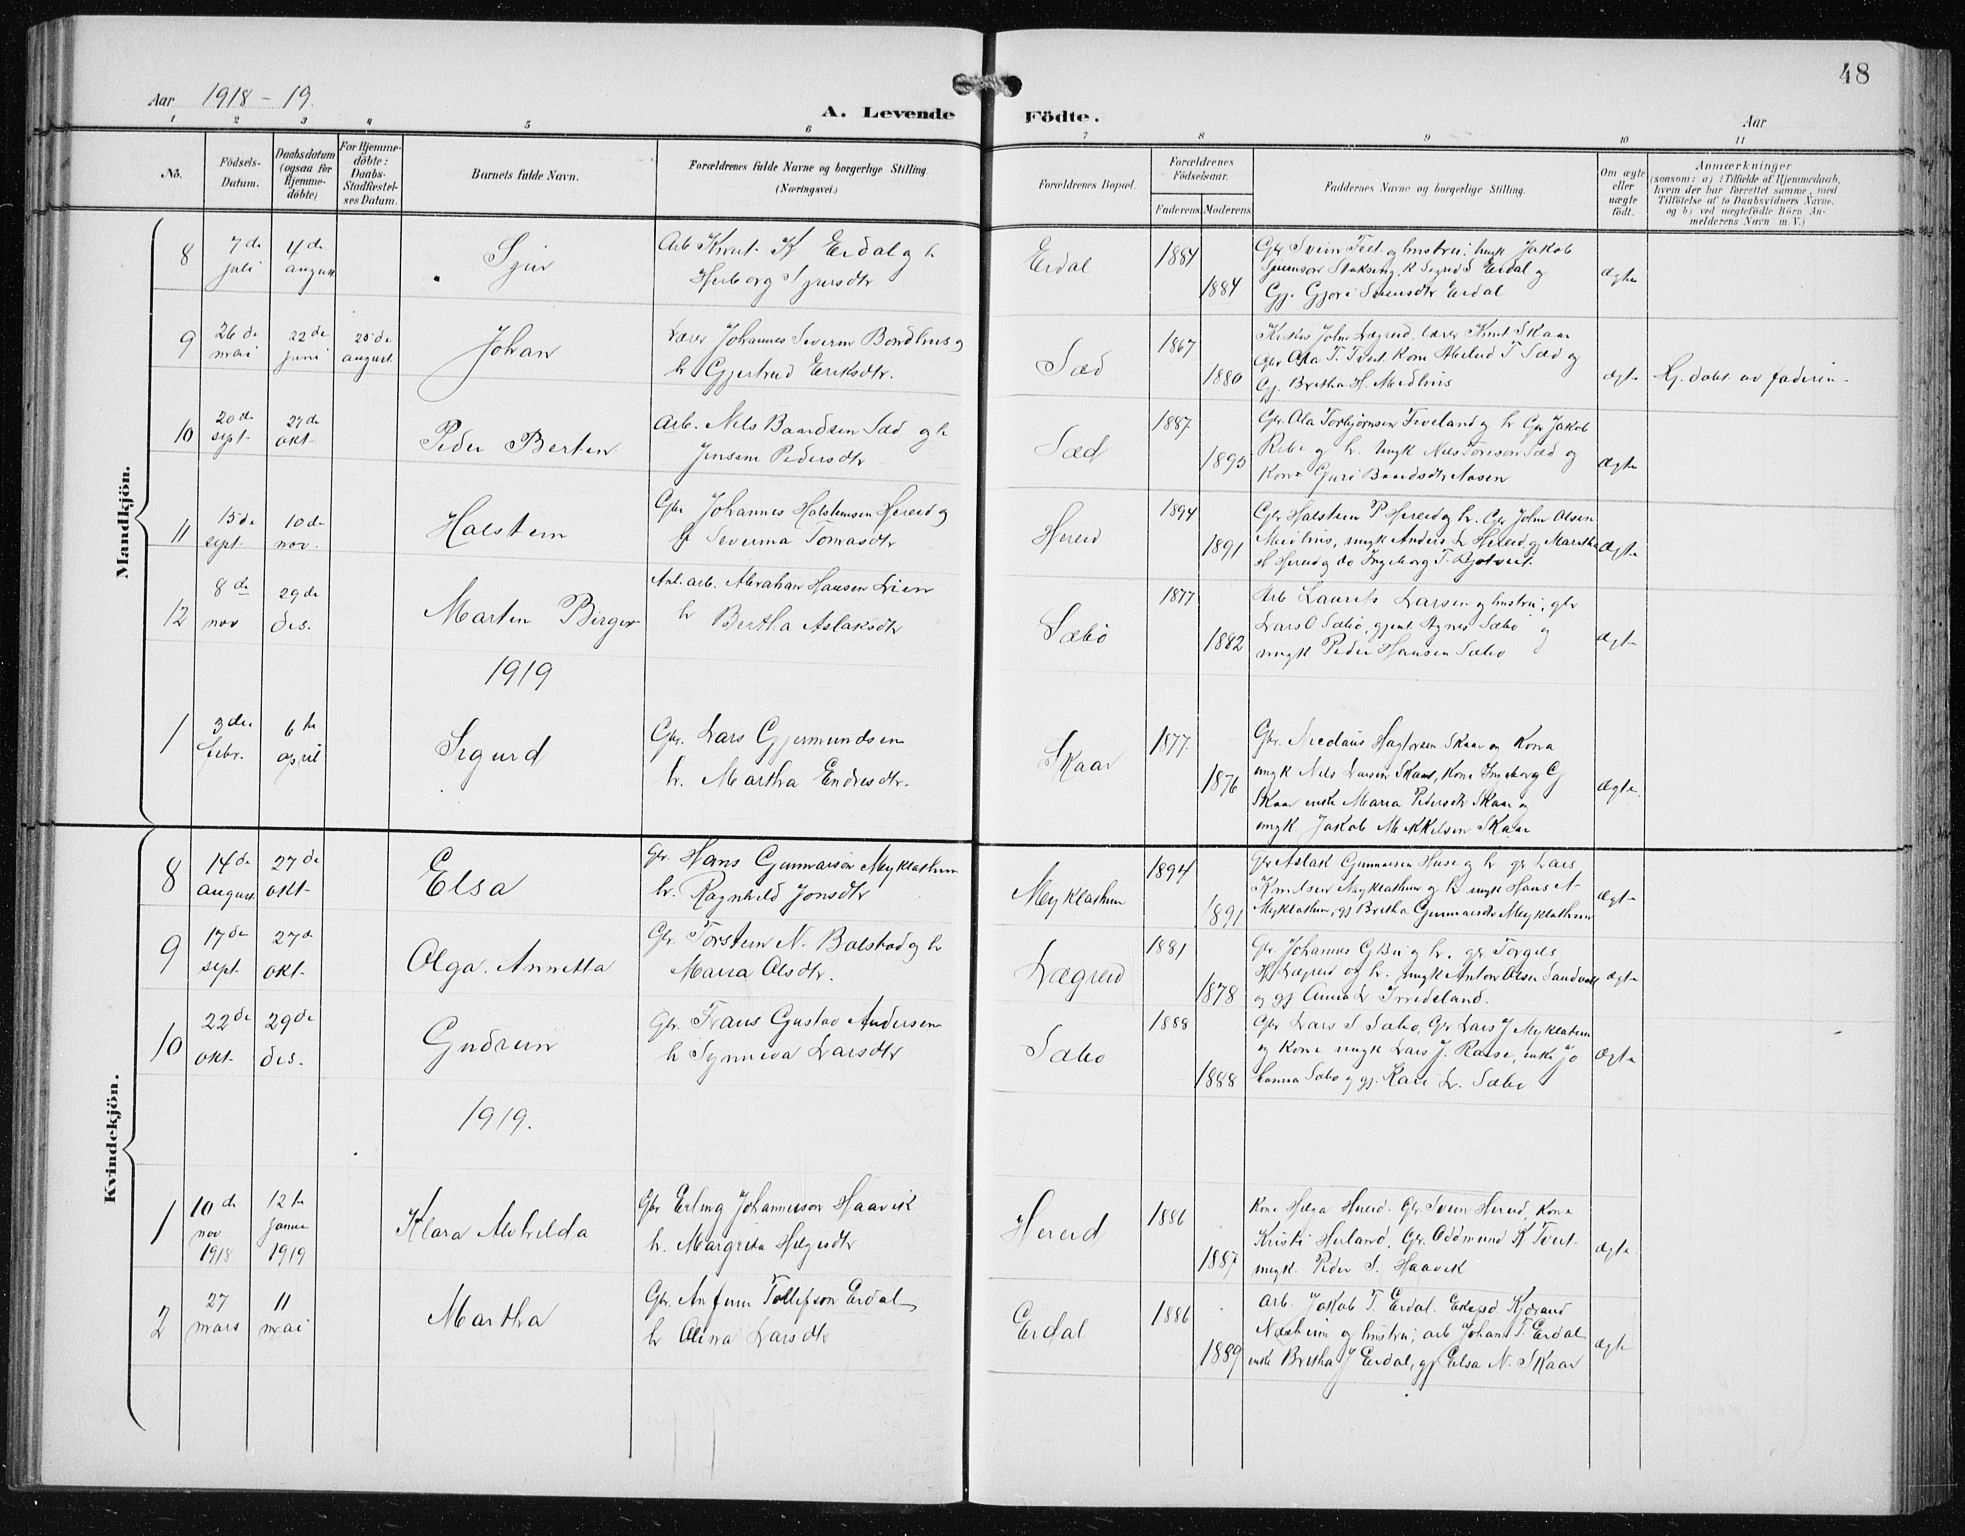 48
Aar 1918 - 19.
A. Levende Födte.
Aar
1 2 3 4 5 6 7 8 9 10 11
No.
Födsels-Datum.
Daabsdatum (ogsaa for Hjemme-döbte)
For Hjemme-döbte: Daabs-Stadfæstel-ses Datum.
Barnets fulde Navn.
Forældrenes fulde Navne og borgerlige Stilling (Næringsvei.)
Forældrenes Bopæl.
Forældrenes Födselsaar.
Faderens Moderens
Faddernes Navne og borgerlige Stilling.
Om ægte eller uægte födt.
Anmærkninger
(saasom: a) i Tilfælde af Hjemmedaab,
hvem der har forrettet samme, med
Tilföielse af to Daabsvidners Navne.
og b) ved uægtefödte Börn An-
melderens Navn m. V.)
Mandkjön.
8 7 de juli 4 de august Sjur
Arb Knut K Erdal og h
Herborg Sjursdtr
Erdal 1884 1884
Gbr Svein Tveit og hustru, ungk Jakob
Sigrid S Erdal og
Gj. Gjøri Erdal
ægte
9 26 de mai 22 de juni 25 de august Johan
Lærer Johannes Severin Bondhus og
h Gjertrud Eriksdtr.
Sæd 1867 1880
Kirkes John Lægreid, lærer Knut Skaar
Gbr Ola T. Tveit Kone T Sæd og
Gj. Bretha H. Medhus
ægte
Hj. døbt av faderen
10 20 de sept 27 de okt Peder Berten
Arb. Nils Baardsen Sæd og h
Jensine Pedersdtr
Sæd 1887 1895
Gbr Ola Torbjørnsen Tveland og h Gbr Jakob
og h. Ungk Nils Torson Sæd og
Kone Guri Baardsdtr Aasen
ægte
11 15 de sept 10 de nov. Halstein
Gbr Johannes Halsteinsen Hereid og
h Severina Tomasdtr
Hereid 1894 1891
Gbr Halstein P Hereid og h. Gbr John Olsen
Medhus, ungk Anders L Hereid, gj Martha
H Hereid og do Ingeborg T. Ljotveit.
ægte
12 8 de nov 29 de des. Marten Birger
Anl. arb. Abraham Hansen Lien
h Bertha Aslaksdtr
Sæbö 1877 1882
Arb Laurits Larsen og hustru, gbr
Lars O Sæbö, gjent Agnes Sæbö og
ungk Peder Hansen Sæbö
ægte
1919
1 3 die febr. 6 te april Sigurd
Gbr. Lars Gjermundsen
h. Martha Endresdtr.
Skaar 1877 1876
Gbr. Nicolaus Hagtorsen Skaar og Kona
ungk Nils Larsen Skaar, Kone Ingeborg G
Skaar enke Maria Pedersdtr Skaar og
ungk Jakob Mikkelsen Skaar
ægte.
Kvindekjön.
8 14 de august 27 de okt Elsa
Gbr. Hans Gunnarson Myklathun
h. Ragnhild Jonsdtr
Myklathun 1894 1891
Gbr Aslak Gunnarsen Huse og h gbr Lars
Knudsen Myklathun og h ungk Hans A
Myklathun, gj Bretha Gunnarsdtr Myklathun
ægte
9 17 de sept 27 de okt Olga. Annetta
Gbr. Torstein N. Bolstad og h
Maria Olsdtr.
Lægreid 1881 1878
Gbr. Johannes G Bu og h. gbr Torgils
H Lægreid og h. ungk Anton Olsen Sandven
og gj Anna L
ægte
10 22 de okt 29 de des. Gudrun
Gbr. Frans Gustav Andersen
h Synneva Larsdtr
Sæbö 1888 1888
Gbr Lars S Sæbö, Gbr Lars J Myklathun
og Kone ungk Lars J. Raase, enke Jo
hanna Sæbö og gj. Kari L. Sæbö
ægte
1919.
1 10 de nov 1918 12 te januar 1919 Klara Alvhilda
Gbr Erling Johannesson Haavik
h. Margreta Helgesdtr
Hereid 1886 1887
Kone Helga Hereid. Gbr Svein Hereid, Kone
Kristi Herland, Gbr. Oddmund K Tveit
ungk. Peder S. Haavik
ægte
2 27 mars 11 mai Martha
Gbr. Anfinn Tollefson Erdal
h Olina Larsdtr
Erdal 1886 1889
Arb. Jakob T. Erdal. Eksp Kjærand
Næsheim og hustru, arb Johan T. Erdal
enke Bretha J Erdal, gj Elsa N. Skaar
ægte